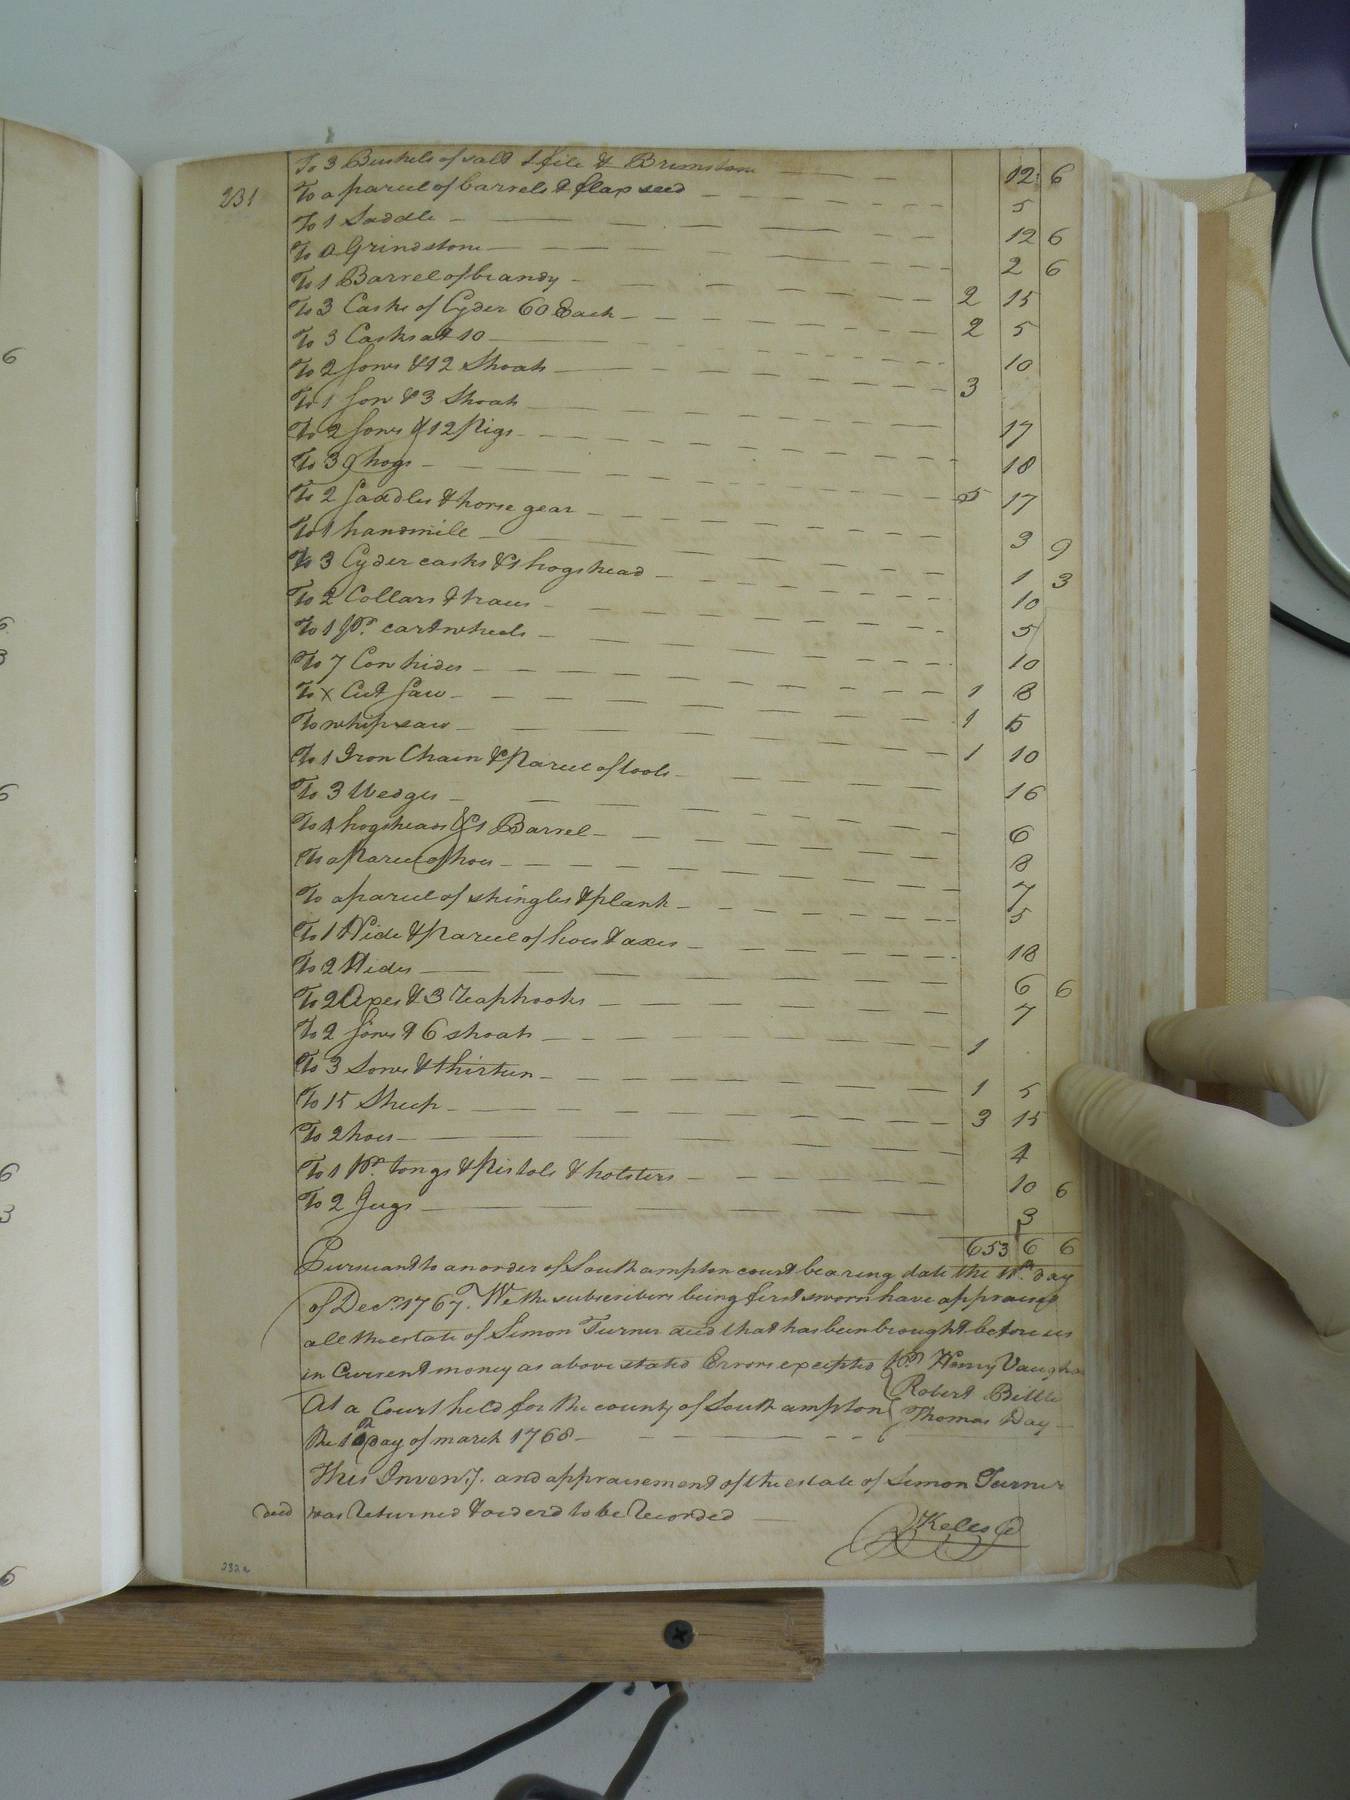 To 3 Bushels of salt 1 file & Brimstone 12 6
231
To a parcel of barrels & flax seed 5
To 1 Saddle 12 6
To a Grindstone 2 6
To 1 Barrel of brandy 2 15
To 3 Casks of Cyder 60 Each 2 5
To 3 Casks at 10 10
To 2 Sows & 12 Shoats 3
To 1 Sow & 3 Shoats 17
To 2 Sows & 12 Pigs 18
To 39 hogs 5 17
To 2 Saddles & horse gear 3 9
To 1 handmile 1 3
To 3 Cyder casks & 1 hogshead 10
To 2 Collars & haws 5
To 1 Pr. cartwheels 10
To 7 Cow hides 1 8
To X Cut Saw 1 5
To whipsaw 1 10
To 1 Iron Chain & Parcel of tools 16
To 3 Wedges 6
To 4 hogsheads & 1 Barrel 8
To a Parcel of hoes 7
To a parcel of shingles & plank 5
To 1 Hide & Parcel of hoes & axes 18
To 2 Hides 6 6
To 2 Axes & 3 reaphooks 7
To 2 Sows & 6 shoats 1
To 3 Sows & thirteen 1 5
To 15 Sheep 3 15
To 2 hoes 4
To 1 Pr. tongs & Pistols & holsters 10 6
To 2 Jugs 3
653 6 6
Pursuant to an order of Southampton court bearing date the 11th day
of Decr. 1767. We the subscribers being first sworn have appraised
all the estate of Simon Turner decd that has been brought before us
in Current money as above stated Errors excepted Henry Vaughan
Robert Bittle
At a Court held for the county of Southampton Thomas Day
the 10th day of march 1768
This Inventy. and appraisement of the estate of Simon Turner
decd was returned & orderd to be recorded
Kello
232a
6
6
3
6
6
3
6